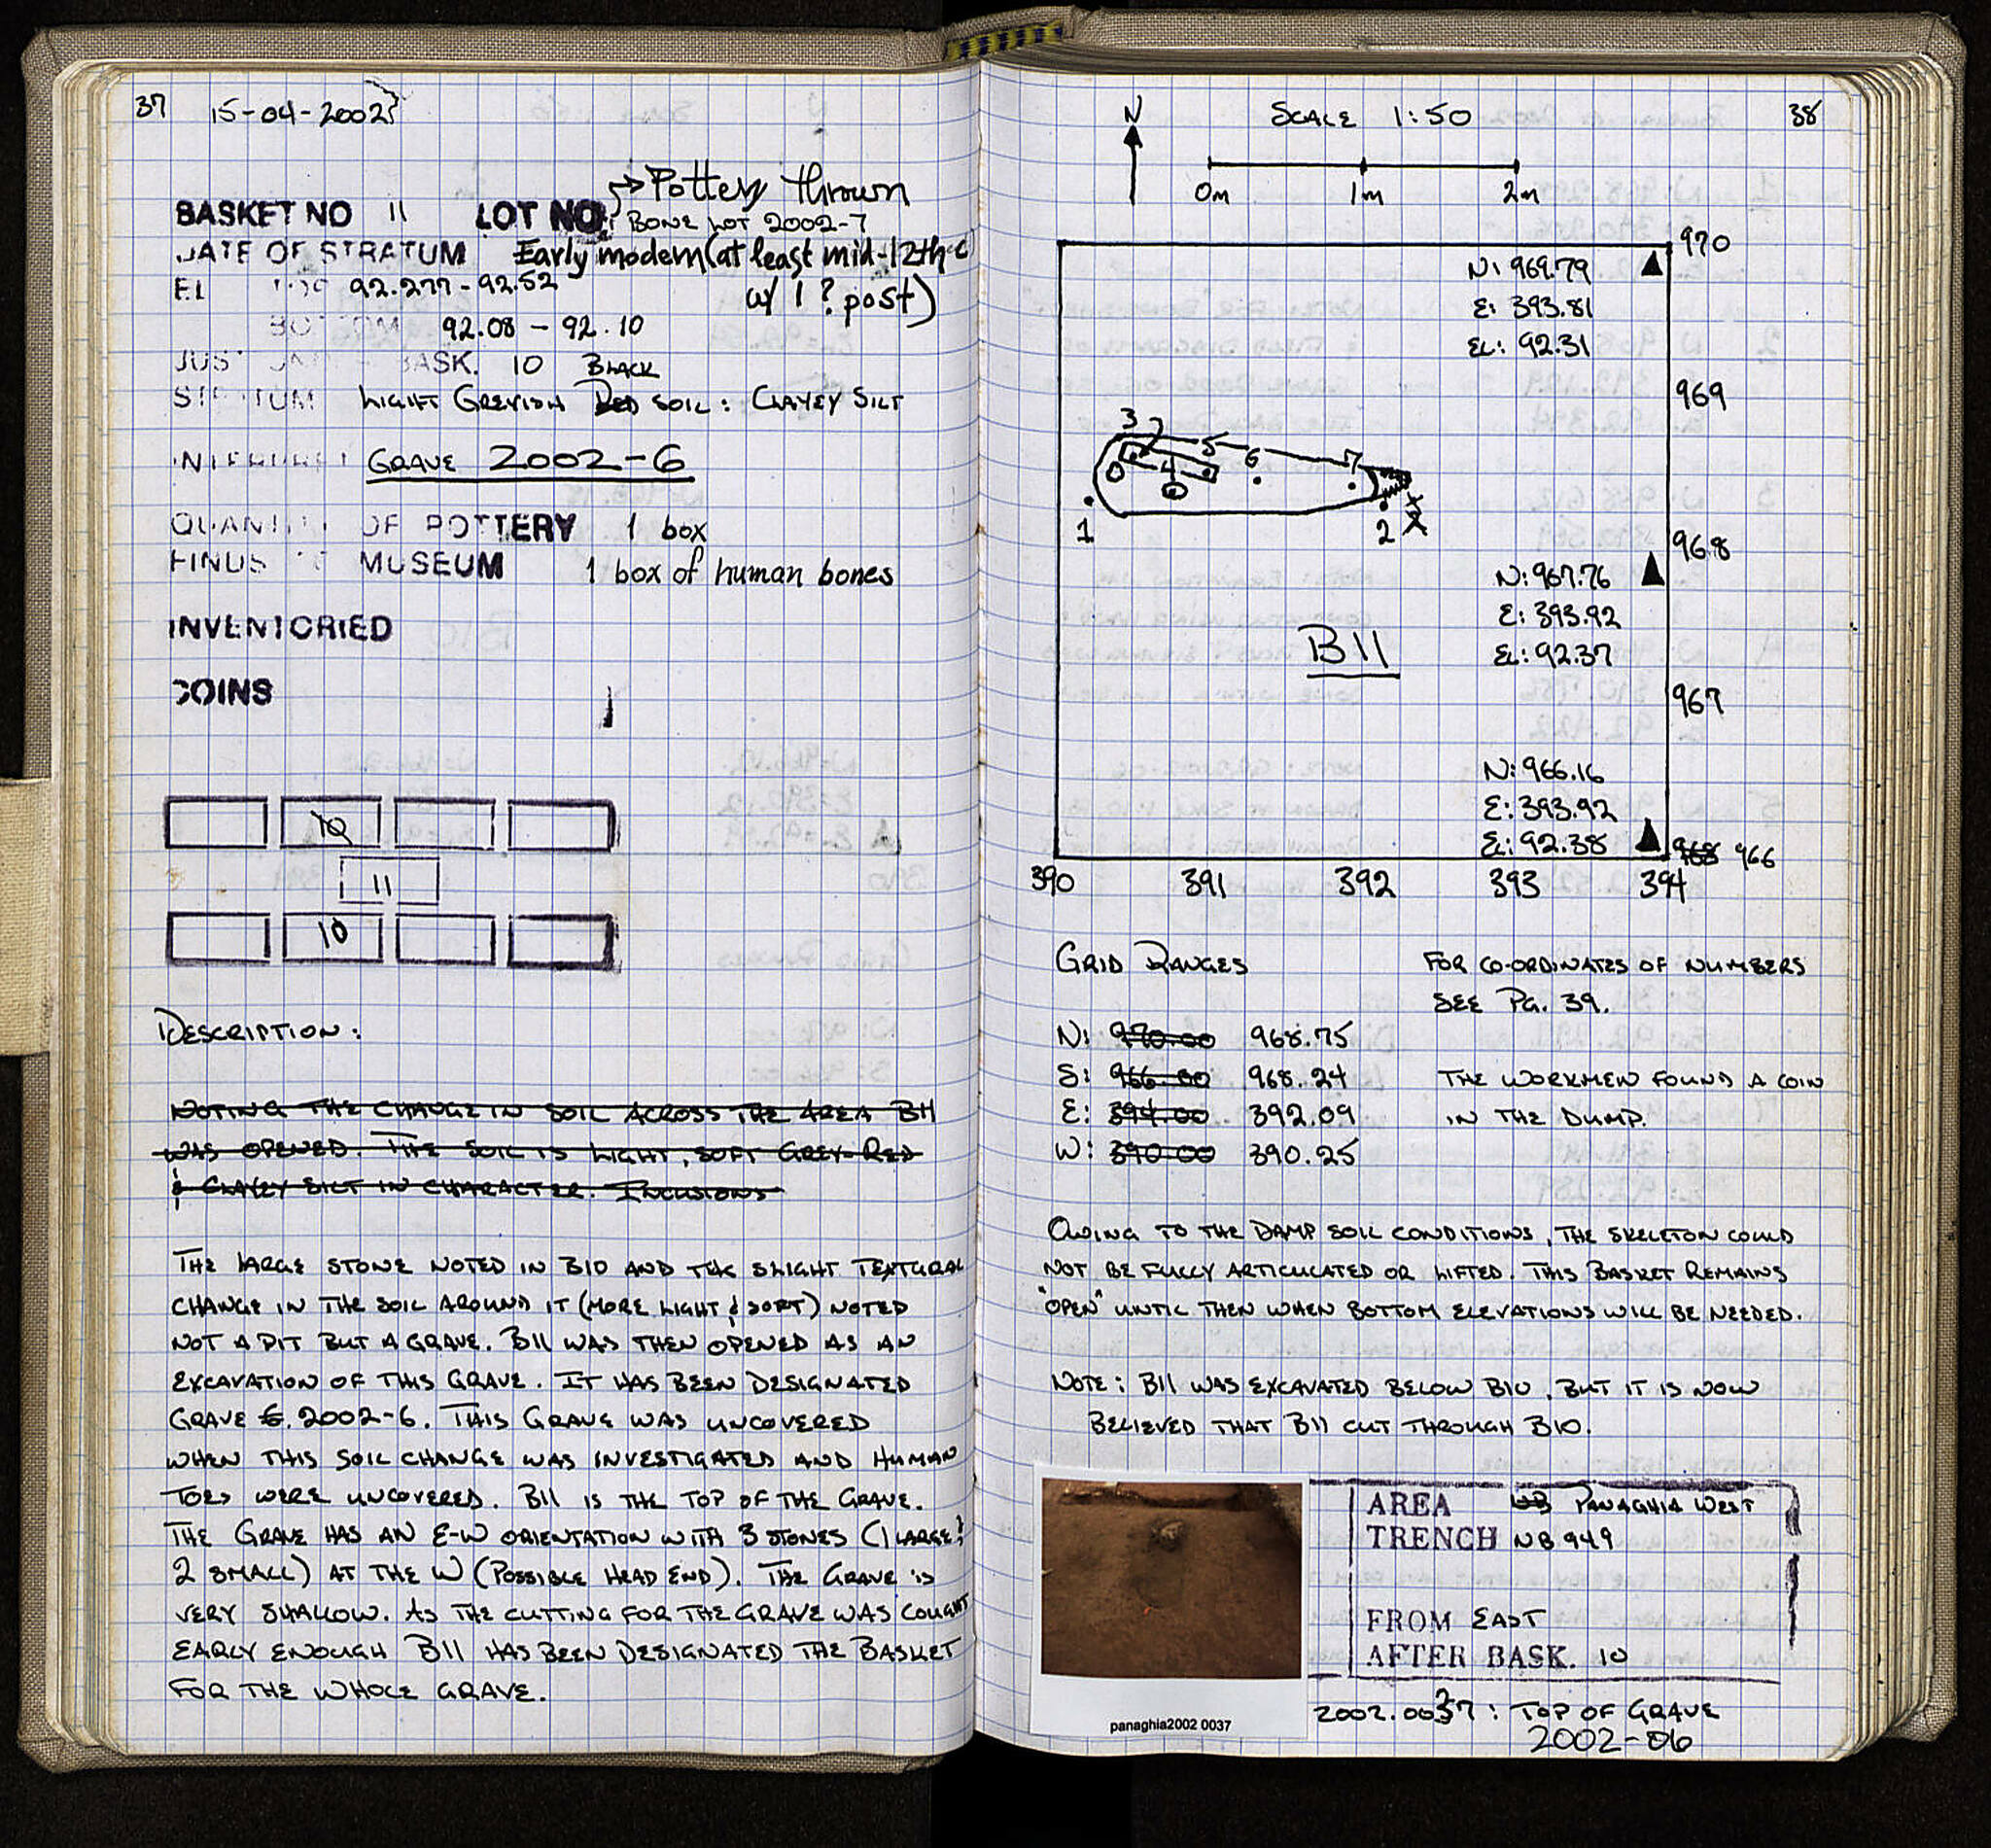 37 15-04-2002
→ Pottery thrown
BASKET NO 11 LOT NO. BONE LOT 2002-7
DATE OF STRATUM Early modern (at least mid-12th c
w/ 1 ? post)
EL TOP 92.277 - 92.52
BOTTOM 92.08 - 92.10
JUST BASK. 10 BLACK
STRATUM LIGHT GREYISH RED SOIL: CLAYEY SILT
INTERPRET GRAVE 2002-6
QUANTITY OF POTTERY 1 box
FINDS TO MUSEUM 1 box of human bones
INVENTORIED
COINS
10
11
10
DESCRIPTION:
NOTING THE CHANGE IN SOIL ACROSS THE AREA B11
WAS OPENED. THE SOIL IS LIGHT, SOFT GREY-RED
& CLAYEY SILT IN CHARACTER. INCLUSIONS
THE LARGE STONE NOTED IN B10 AND THE SLIGHT TEXTURAL
CHANGE IN THE SOIL AROUND IT (MORE LIGHT & SOFT) NOTED
NOT A PIT BUT A GRAVE. B11 WAS THEN OPENED AS AN
EXCAVATION OF THIS GRAVE. IT HAS BEEN DESIGNATED
GRAVE 2002-6. THIS GRAVE WAS UNCOVERED
WHEN THIS SOIL CHANGE WAS INVESTIGATED AND HUMAN
TOES WERE UNCOVERED. B11 IS THE TOP OF THE GRAVE.
THE GRAVE HAS AN E-W ORIENTATION WITH 3 STONES (1 LARGE &
2 SMALL) AT THE W (POSSIBLE HEAD END). THE GRAVE IS
VERY SHALLOW. AS THE CUTTING FOR THE GRAVE WAS COUGHT
EARLY ENOUGH B11 HAS BEEN DESIGNATED THE BASKET
FOR THE WHOLE GRAVE.
N SCALE 1:50 38
0m 1m 2m
970
N: 969.79
E: 393.81
EL: 92.31
969
3 5 6 7
4
1 2
968
N: 967.76
E: 393.92
EL: 92.37
B11
967
N: 966.16
E: 393.92
EL: 92.38
968 966
390 391 392 393 394
GRID RANGES
FOR CO-ORDINATES OF NUMBERS
SEE PG. 39.
N: 970.00 968.75
S: 966.00 968.24
E: 394.00 392.09
W: 390.00 390.25
THE WORKMEN FOUND A COIN
IN THE DUMP.
OWING TO THE DAMP SOIL CONDITIONS, THE SKELETON COULD
NOT BE FULLY ARTICULATED OR LIFTED. THIS BASKET REMAINS
"OPEN" UNTIL THEN WHEN BOTTOM ELEVATIONS WILL BE NEEDED.
NOTE: B11 WAS EXCAVATED BELOW B10, BUT IT IS NOW
BELIEVED THAT B11 CUT THROUGH B10.
AREA PANAGHIA WEST
TRENCH NB 949
FROM EAST
AFTER BASK. 10
panaghia2002 0037
2002.0037: TOP OF GRAVE
2002-06